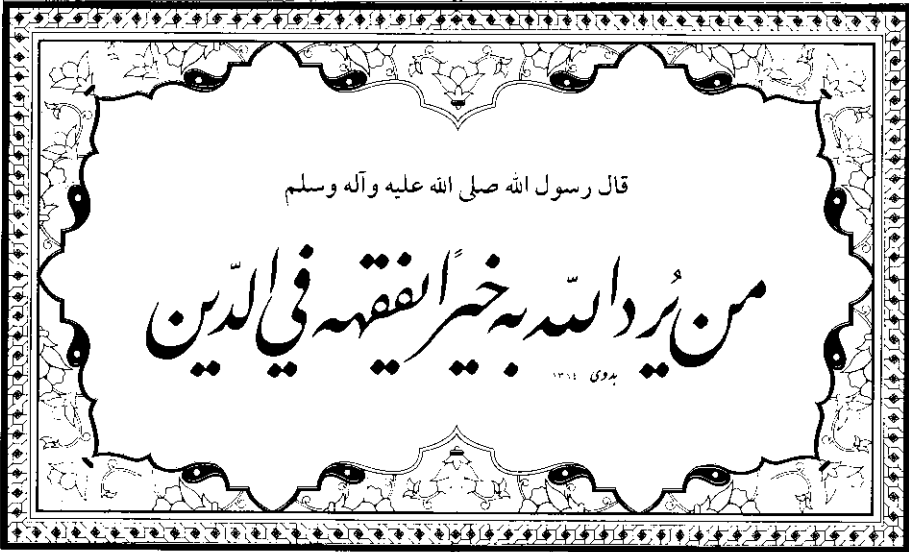 قال رسول الله صلى الله عليه وآله وسلم
من يُرد اللّه به خيرًا يفقهه في الدّين
بدوى ١٣١٤